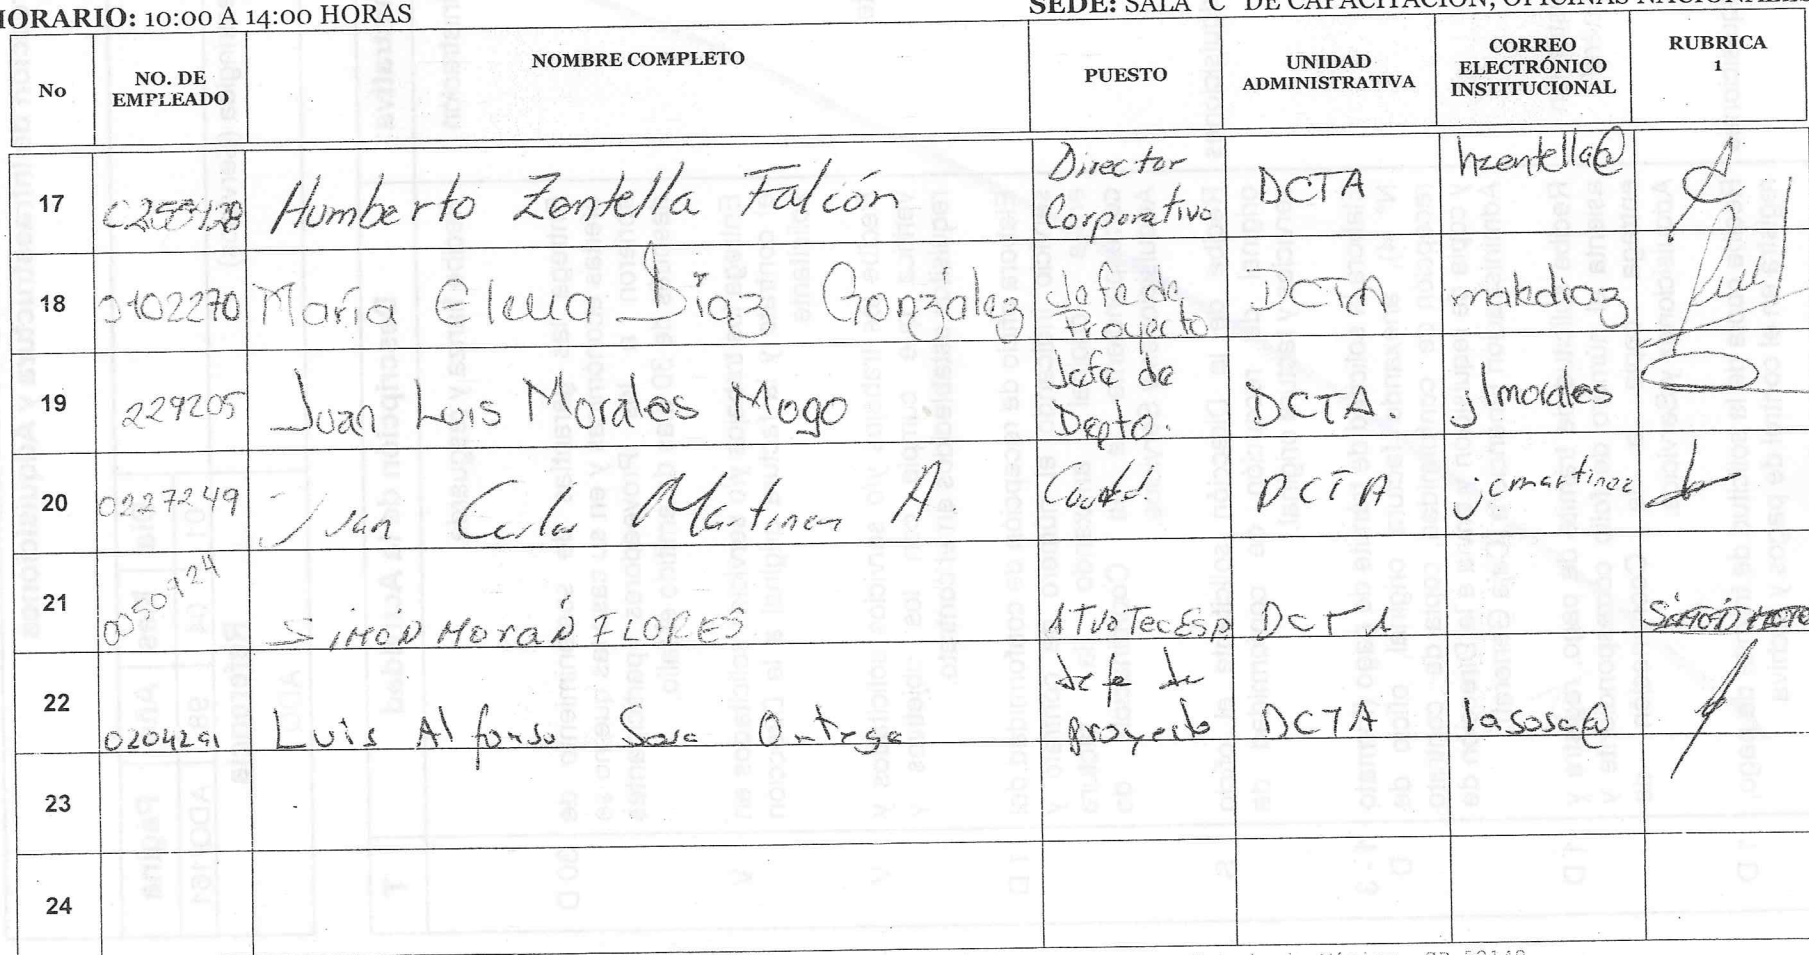 HORARIO: 10:00 A 14:00 HORAS
SEDE: SALA "C" DE CAPACITACIÓN, OFICINAS NACIONALES
No
NO. DE
EMPLEADO
NOMBRE COMPLETO
PUESTO
UNIDAD
ADMINISTRATIVA
CORREO
ELECTRÓNICO
INSTITUCIONAL
RUBRICA
1
17 Humberto Zentella Falcón Director
Corporativo DCTA hzentella@
18 0102270 María Elena Díaz González Jefe de
Proyecto DCTA makdiaz
19 229205 Juan Luis Morales Mogo Jefe de
Depto. DCTA. jlmorales
20 0227249 Juan Carlos Martinez A. DCTA jcmartinez
21 0050924 SIMON MORAN FLORES ATVO TecEsp DCTA
22 0204291 Luis Alfonso Sosa Ortega Jefe de
proyecto DCTA lasosa@
23
24